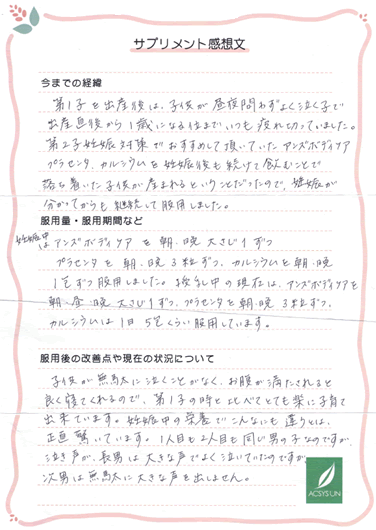 サプリメント感想文
今までの経緯
第1子を出産後は、子供が昼夜問わずよく泣く子で
出産直後から1歳になる位までいつも疲れ切っていました。
第2子妊娠対策でおすすめして頂いていたアンズボディケア
プラセンタ、カルシウムを妊娠後も続けて飲むことで
落ち着いた子供が産まれるということだったので、妊娠が
分かってからも継続して服用しました。
服用量・服用期間など
妊娠中
はアンズボディケアを朝・晩 大さじ1ずつ
プラセンタを朝・晩3粒ずつ、カルシウムを朝・晩
1包ずつ服用しました。授乳中の現在は、アンズボディケアを
朝・昼・晩 大さじ1ずつ、プラセンタを朝・晩 3粒ずつ、
カルシウムは1日 5包くらい服用しています。
服用後の改善点や現在の状況について
子供が無駄に泣くことがなく、お腹が満たされると
良く寝てくれるので、第1子の時と比べてとても楽に子育て
出来ています。妊娠中の栄養でこんなにも違うとは、
正直驚いています。1人目も2人目も同じ男の子なのですが、
泣き声が、長男は大きな声でよく泣いていたのですが
次男は無駄に大きな声を出しません。
ACSYSUN